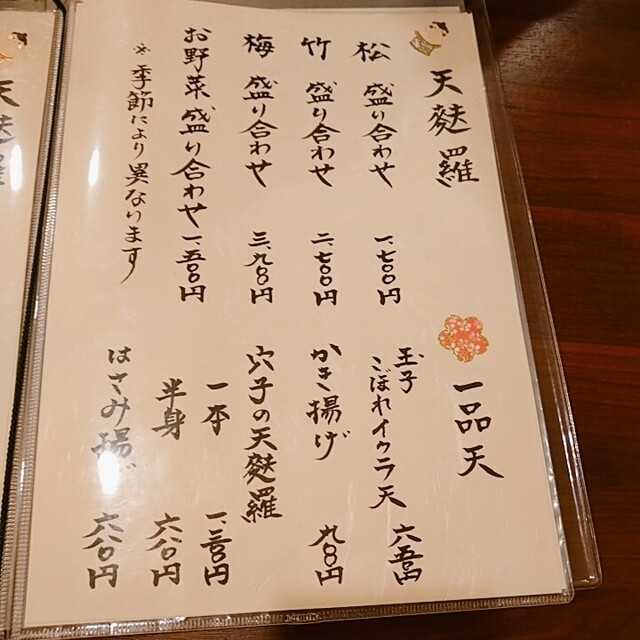 天麩羅
松 盛り合わせ 一、七〇〇円
竹 盛り合わせ 二、七〇〇円
梅 盛り合わせ 三、九八〇円
お野菜盛り合わせ 一、五〇〇円
※季節により異なります
一品天
玉子
こぼれイクラ天 六五〇円
かき揚げ 九八〇円
穴子の天麩羅
一本 一、二三〇円
半身 六八〇円
はさみ揚げ 六八〇円
天麩羅